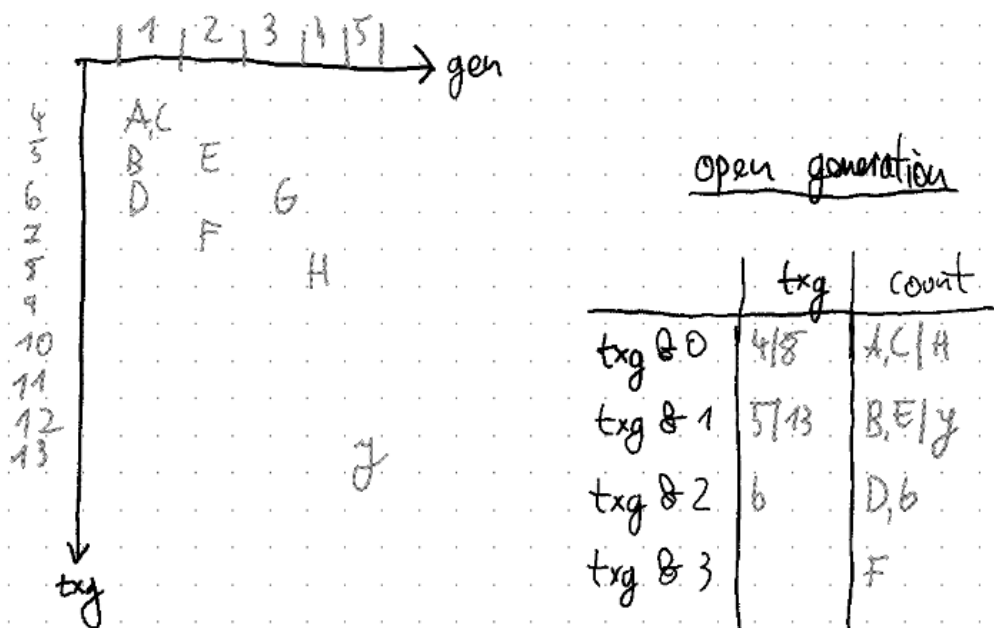 1 2 3 4 5
gen
4 A,C
5 B E
6 D G
7 F
8 H
9
10
11
12
13 y
txg
open generation
txg count
txg & 0 4/8 A,C/H
txg & 1 5/13 B,E/y
txg & 2 6 D,G
txg & 3 F